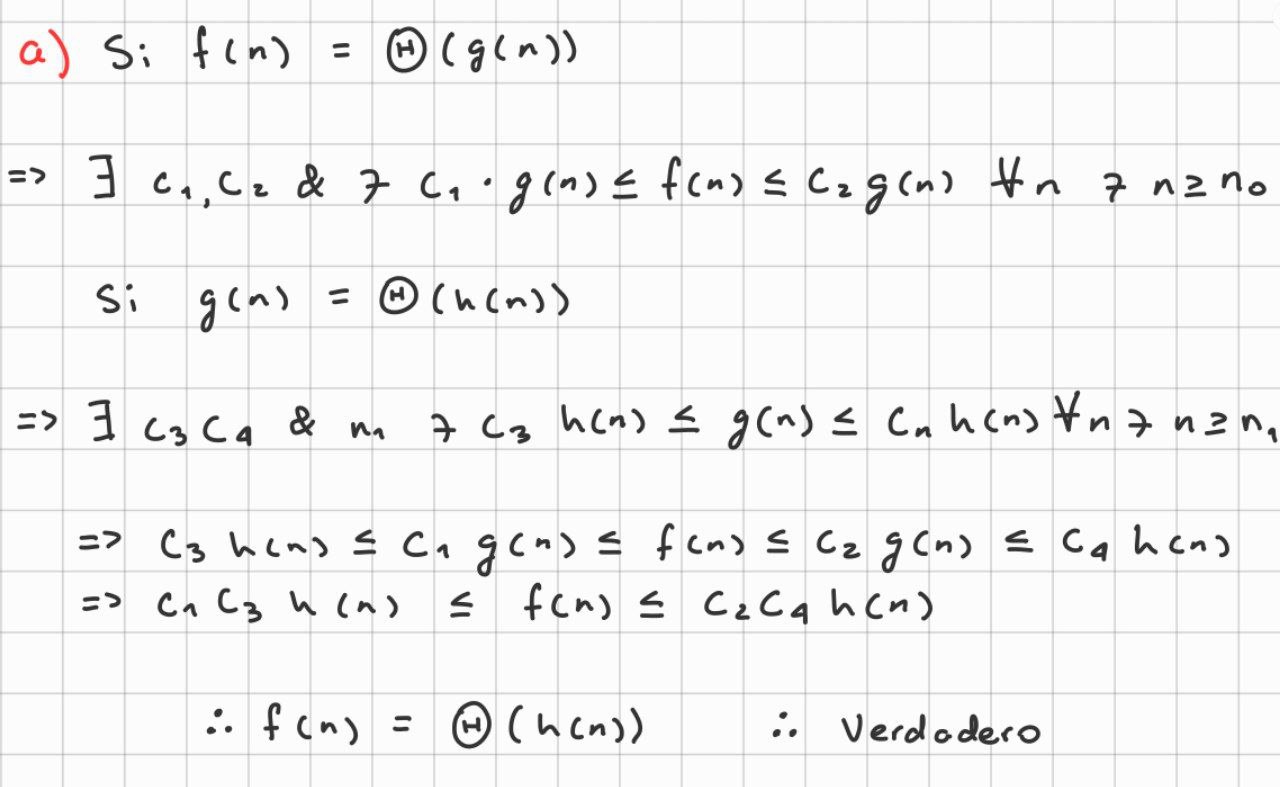 a) Si f(n) = Θ(g(n))
=> ∃ c₁,c₂ & ∋ c₁ · g(n) ≤ f(n) ≤ c₂ g(n) ∀n ∋ n ≥ n₀
Si g(n) = Θ(h(n))
=> ∃ c₃ c₄ & n₁ ∋ c₃ h(n) ≤ g(n) ≤ cₙ h(n) ∀n ∋ n ≥ n₁
=> c₃ h(n) ≤ c₁ g(n) ≤ f(n) ≤ c₂ g(n) ≤ c₄ h(n)
=> c₁ c₃ h(n) ≤ f(n) ≤ c₂c₄ h(n)
∴ f(n) = Θ(h(n)) ∴ Verdadero